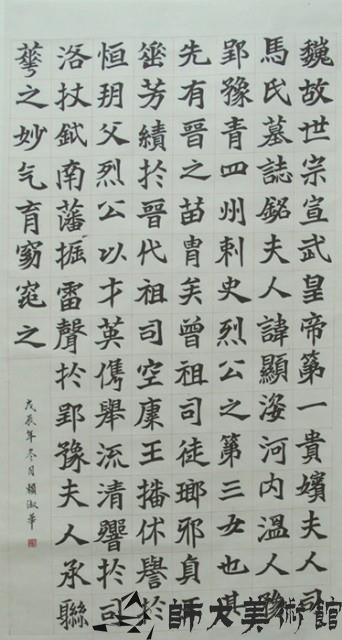 魏故世宗宣武皇帝第一貴嬪夫人司
馬氏墓誌銘夫人諱顯姿河內溫人豫
郢豫青四州刺史烈公之第三女也其
先有晉之苗胄矣曾祖司徒瑯邪貞王
垂芳績於晉代祖司空康王播休譽於
恒玥父烈公以才英儁舉流清響於司
洛杖鉞南藩振雷聲於郢豫夫人承聯
華之妙氣育窈窕之
戊辰年冬月賴淑華
師大美術館